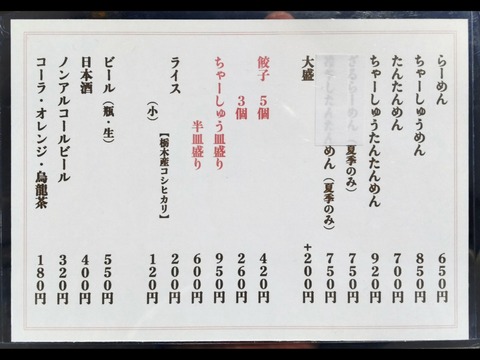 らーめん 650円
ちゃーしゅうめん 850円
たんたんめん 700円
ちゃーしゅうたんたんめん 920円
ざるらーめん（夏季のみ） 750円
たんたんめん（夏季のみ） 750円
大盛 +200円
餃子 5個 420円
3個 260円
ちゃーしゅう皿盛り 950円
半皿盛り 600円
ライス 200円
（小） 120円
【栃木産コシヒカリ】
ビール（瓶・生） 550円
日本酒 400円
ノンアルコールビール 320円
コーラ・オレンジ・烏龍茶 180円